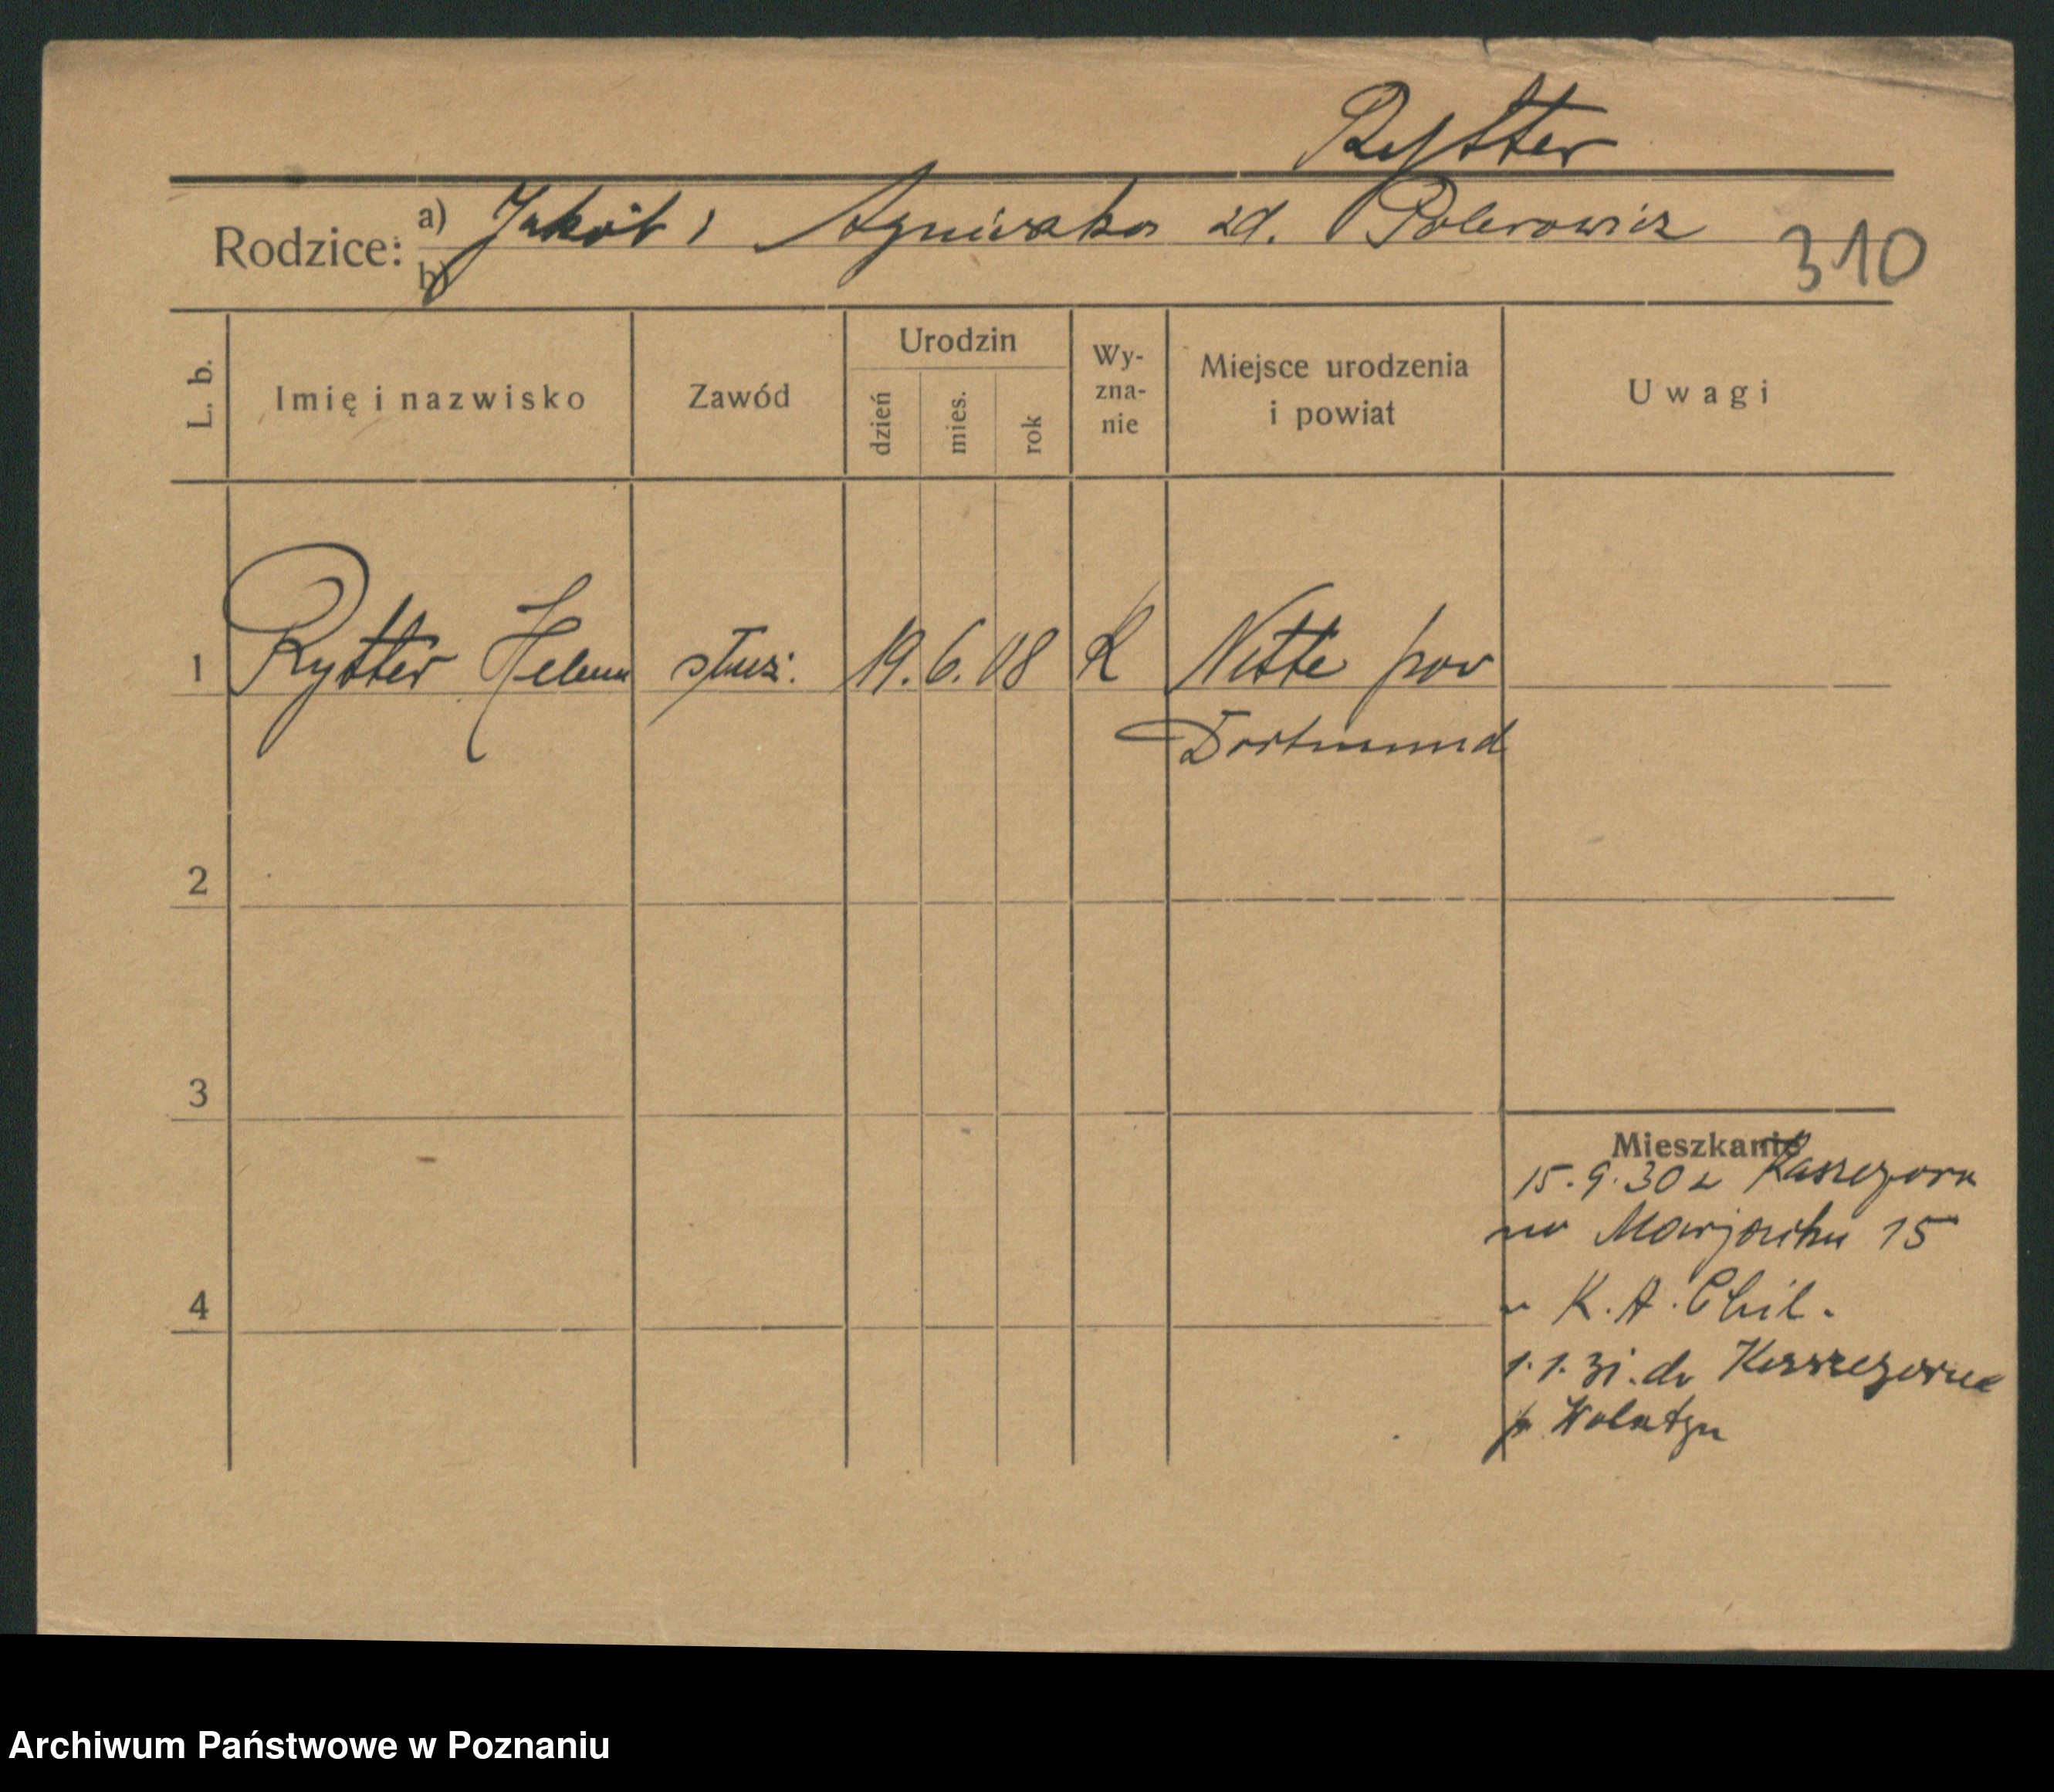 Rytter
Rodzice: a) Jakób i Agnieszka zd.
b)
310
L. b. Imię i nazwisko Zawód Urodzin dzień mies. rok Wy-zna-nie Miejsce urodzenia i powiat Uwagi
1 Rytter Helena służ. 19. 6. 08 K Nette pow
Dortmund
2
3
4
Mieszkanie
15. 9. 30 z
15
K. A. Chil.
1. 1. 31. do
p
Archiwum Państwowe w Poznaniu